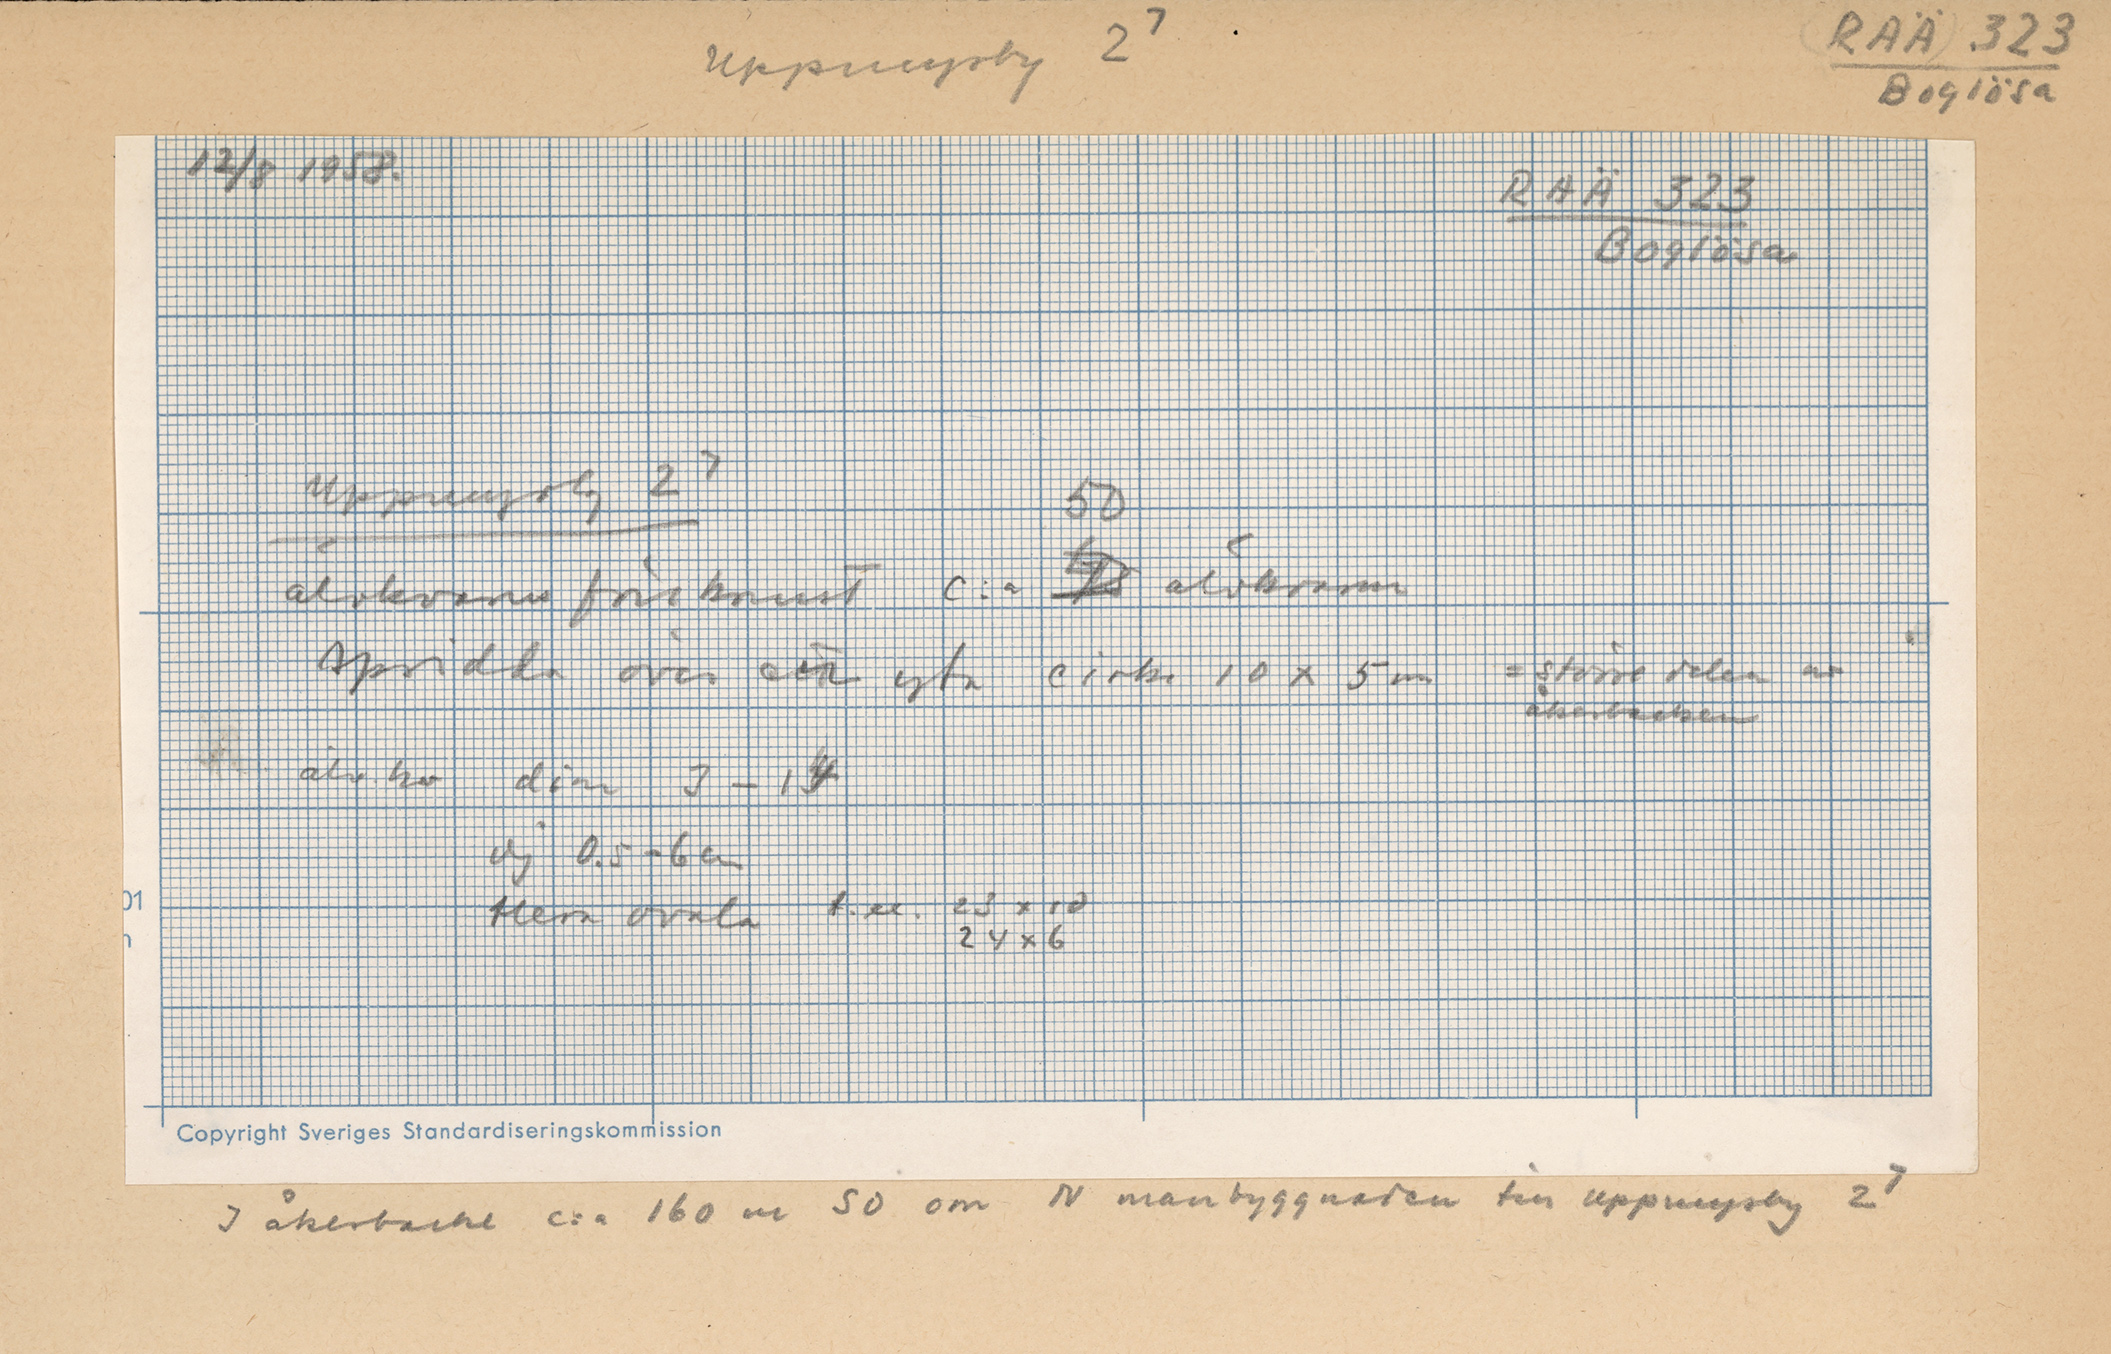 Uppmyrby 2⁷
RAÄ 323
Boglösa
12/8 1958.
RAÄ 323
Boglösa
Uppmyrby 2⁷
50
älvkvarnsförekomst c:a älvkvarnar
spridda över en yta cirka 10 x 5 m = större delen av
åkerbacken
älv.kv diam 3 – 14
dj 0.5 - 6 cm
flera ovala t.ex. 23 x 10
24 x 6
01
Copyright Sveriges Standardiseringskommission
I åkerbacke c:a 160 m SO om N manbyggnaden till Uppmyrby 2⁷